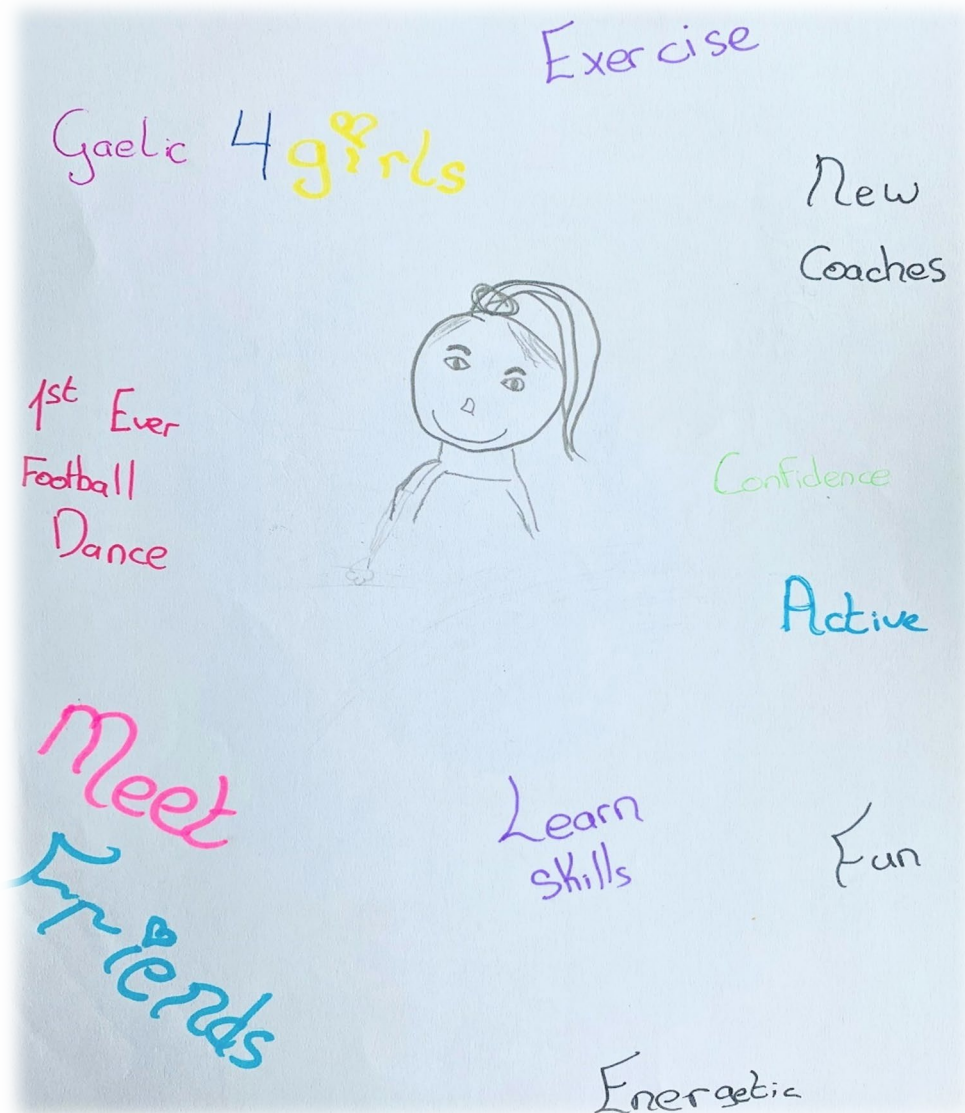 Exercise
Gaelic 4 girls
New
Coaches
1st Ever
Football
Dance
Confidence
Active
Meet
Friends
Learn
skills
Fun
Energetic